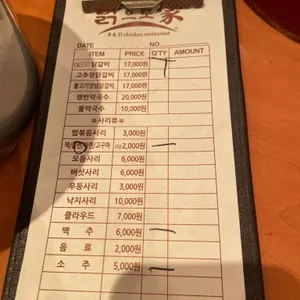 닭으로家
B & D chicken restaurant
DATE NO
ITEM PRICE Q'TY AMOUNT
닭갈비 17,000원
고추장닭갈비 17,000원
불고기양념닭갈비 17,000원
쟁반막국수 20,000원
물막국수 10,000원
※사리류
밥볶음사리 3,000원
고구마 2,000원
모듬사리 6,000원
버섯사리 6,000원
우동사리 3,000원
낙지사리 10,000원
클라우드 7,000원
맥 주 6,000원
음 료 2,000원
소 주 5,000원